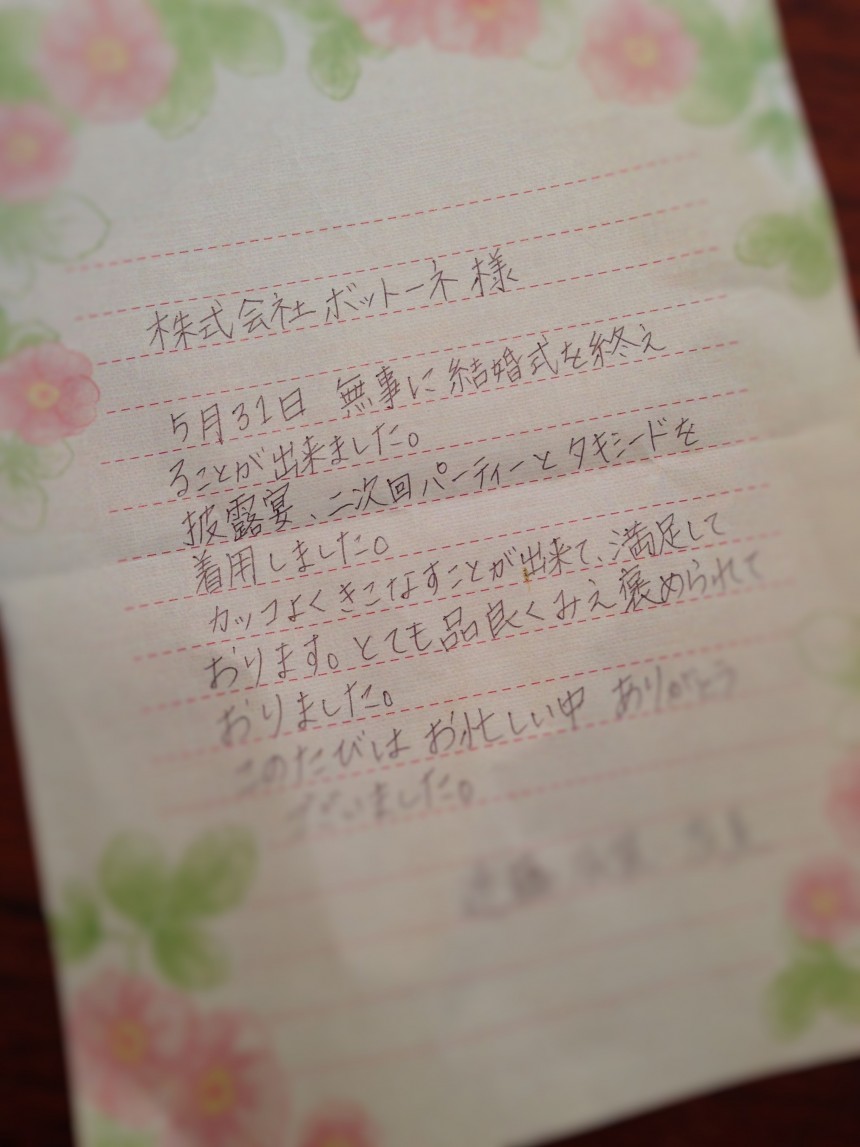 株式会社ボットーネ 様
5月31日 無事に結婚式を終え
ることが出来ました。
披露宴、二次回パーティーとタキシードを
着用しました。
カッコよくきこなすことが出来て、満足して
おります。とても品良くみえ褒められて
おりました。
このたびは お忙しい中 ありがとう
ございました。